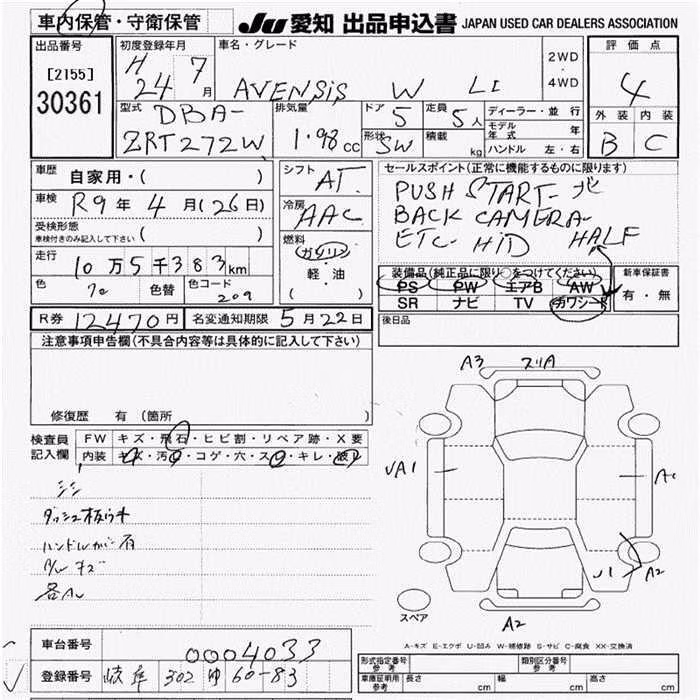 車内保管・守衛保管
JU 愛知 出品申込書 JAPAN USED CAR DEALERS ASSOCIATION
出品番号
[2155]
30361
初度登録年月
H 24 7月
車名・グレード
AVENSIS W LI
2WD
・
4WD
評価点
4
外装 内装
B C
型式
DBA-
ZRT272W
排気量
1.98 CC
ドア 5
形状 SW
定員 5人
積載 kg
ディーラー・並行
モデル年式 年
ハンドル 左・右
車歴 自家用・( )
車検 R9年 4月(26日)
受検形態
車検付きのみ記入して下さい ( )
走行 10万5千383km
色 色替 色コード 209
シフト AT
冷房 AAC
燃料
ガソリン
・
軽・油
( )
セールスポイント(正常に機能するものに限ります)
PUSH START-ナビ
BACK CAMERA-
ETC- HID HALF
装備品(純正品に限り○をつけてください)
PS PW エアB AW
SR ナビ TV カワシート
新車保証書
有・無
R券 12470円 名変通知期限 5月22日
後日品
注意事項申告欄(不具合内容等は具体的に記入して下さい)
修復歴 有(箇所 )
検査員記入欄
FW キズ・飛石・ヒビ割・リペア跡・X要
内装 キズ・汚・コゲ・穴・ス・キレ・破
シミ
ハンドル
A3 スリA
UA1
A1
U1 A2
スペア
A2
A-キズ E-エクボ U-凹み W-補修跡 S-サビ C-腐食 XX-交換済
車台番号 0004033
登録番号 岐阜 302 ゆ 60-83
形式指定番号 参考
類別区分番号 参考
車庫証明用 参考 長さ cm 幅 cm 高さ cm